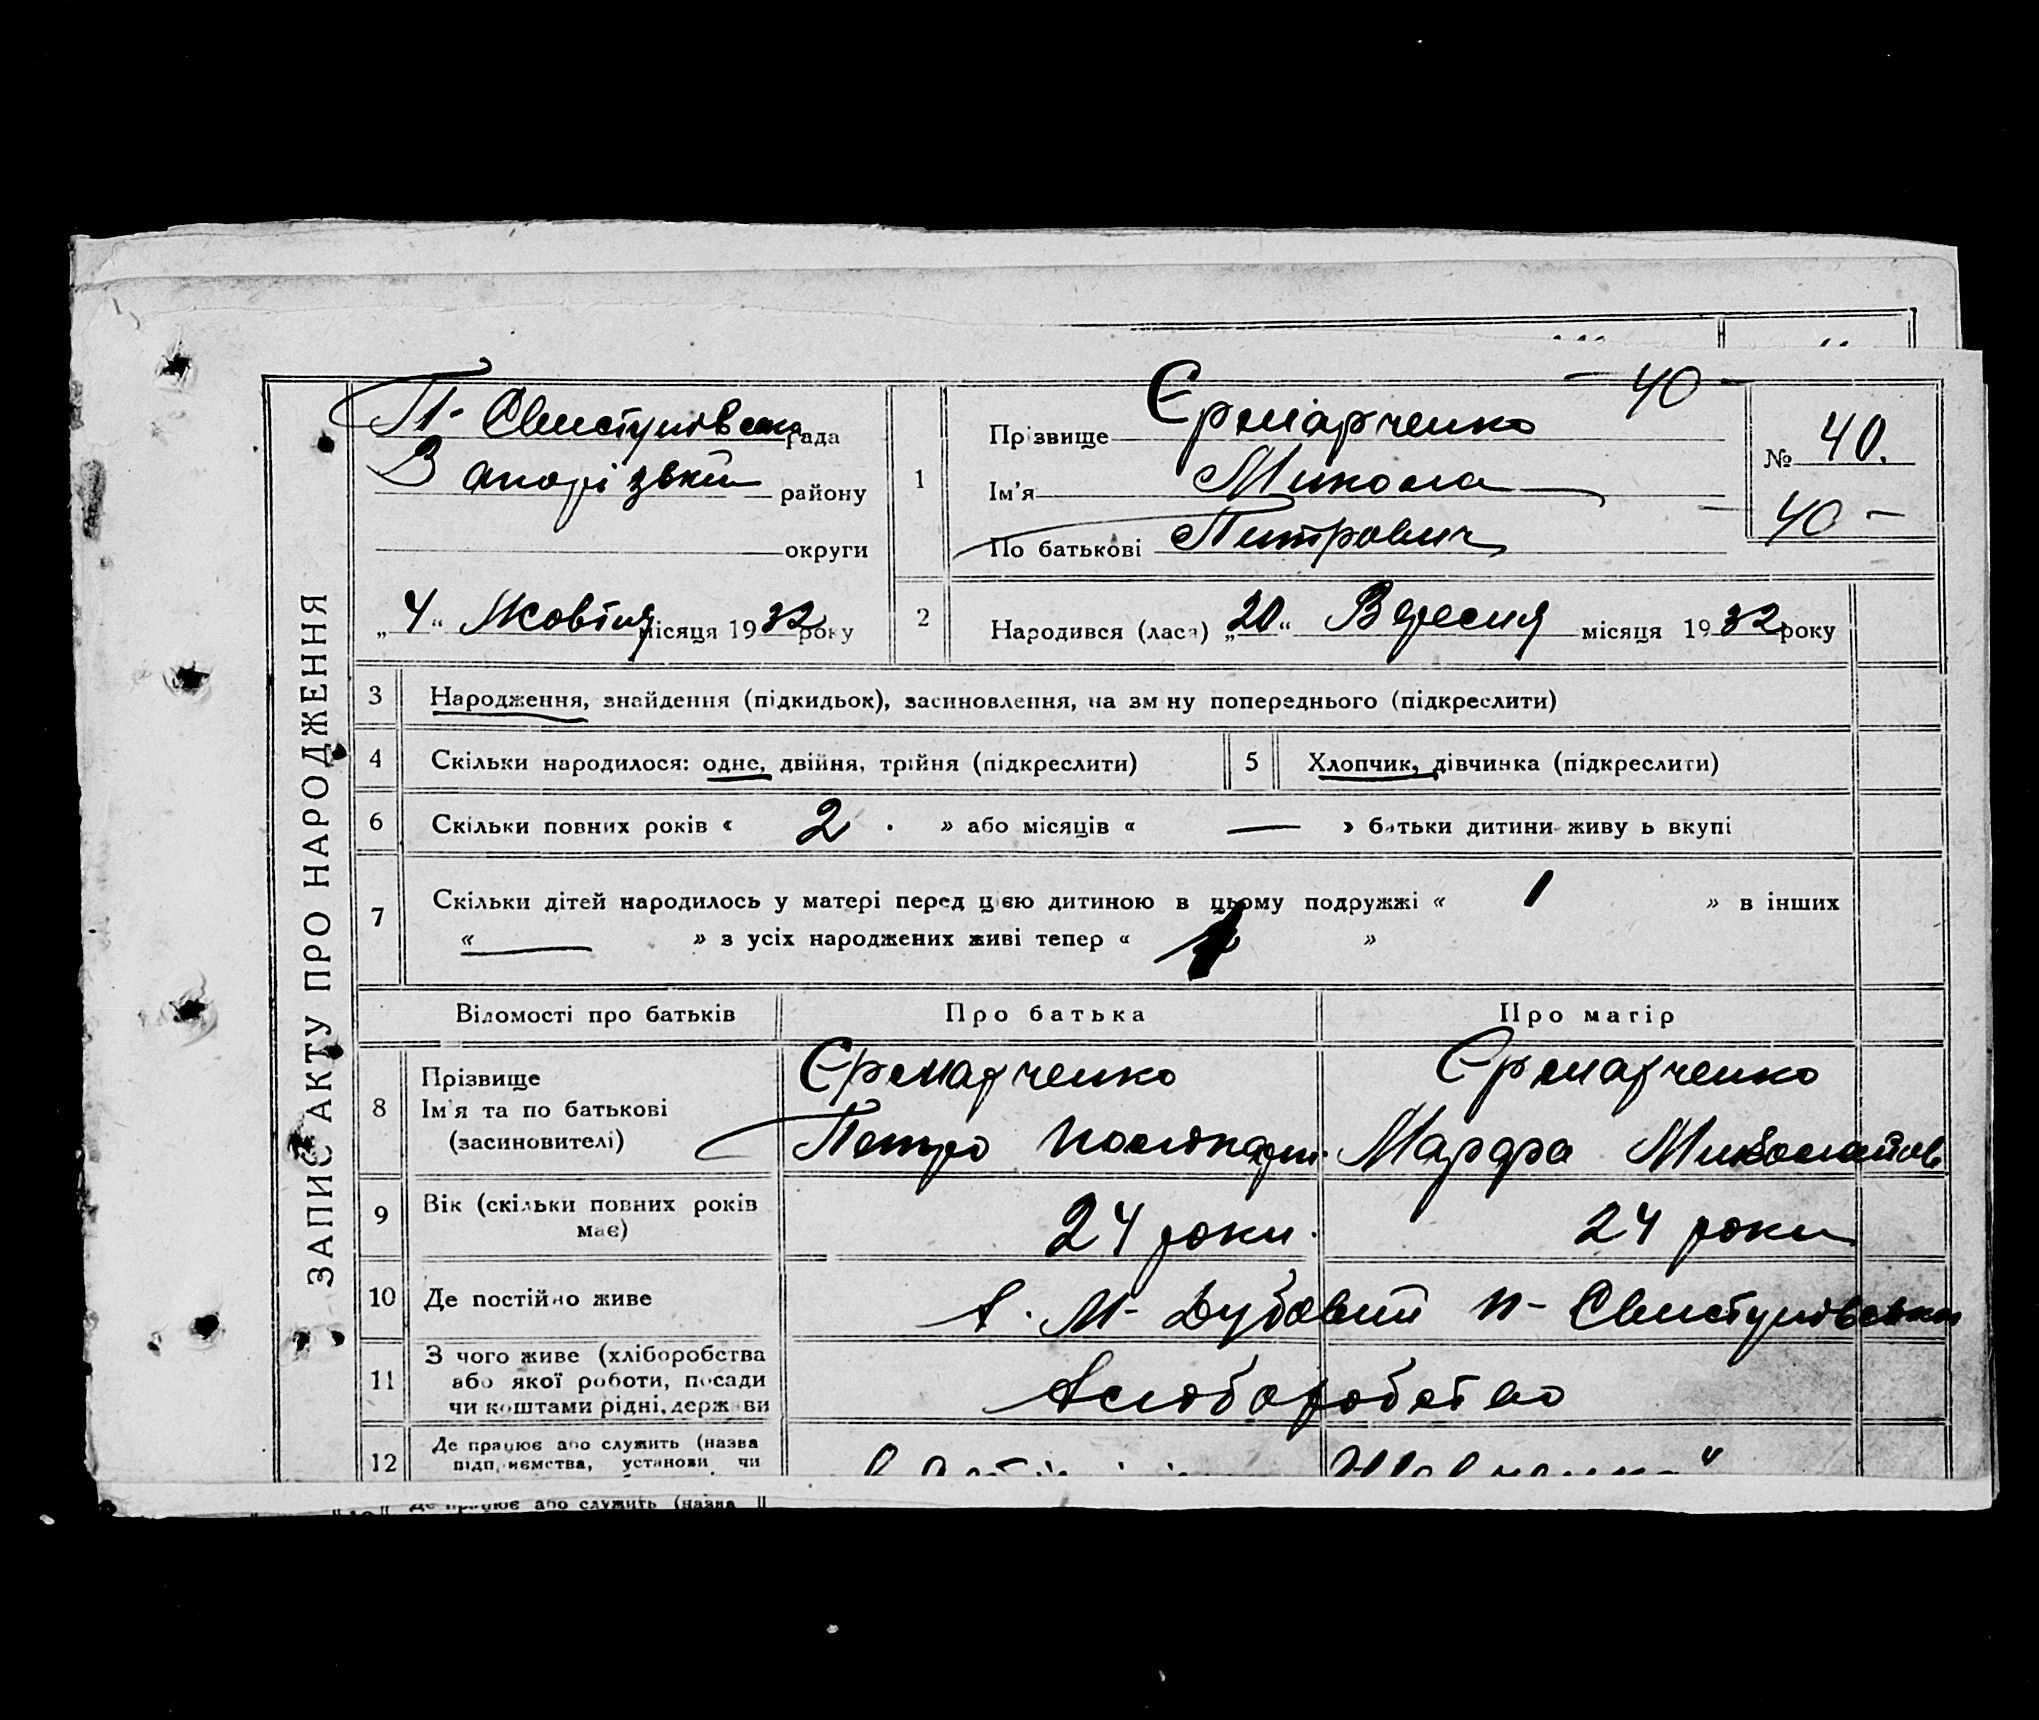 ЗАПИС АКТУ ПРО НАРОДЖЕННЯ
П- Свистунівська рада
Запорізький району
округи
„4“ Жовтня місяця 1932 року
1
Прізвище Єрмарченко
Ім'я Микола
По батькові Питрович
- 40 -
№ 40.
- 40 -
2
Народився (лася) „20“ Вересня місяця 1932 року
3 Народження, знайдення (підкидьок), засиновлення, на зміну попереднього (підкреслити)
4 Скільки народилося: одне, двійня, трійня (підкреслити)
5 Хлопчик, дівчинка (підкреслити)
6 Скільки повних років « 2 . » або місяців « — » батьки дитини живуть вкупі
7 Скільки дітей народилось у матері перед цією дитиною в цьому подружжі « 1 » в інших
« — » з усіх народжених живі тепер « 1 »
Відомості про батьків Про батька Про матір
8 Прізвище
Ім'я та по батькові
(засиновителі)
Єрмарченко
Петро
Єрмарченко
Марфа Миколаїв
9 Вік (скільки повних років
має)
24 роки.
24 роки
10 Де постійно живе
Х. М- Дубовий П- Свистунівської
11 З чого живе (хліборобства
або якої роботи, посади
чи коштами рідні, держави
Хліборобство
12 Де працює або служить (назва
підприємства, установи чи
Де працює або служить (назва